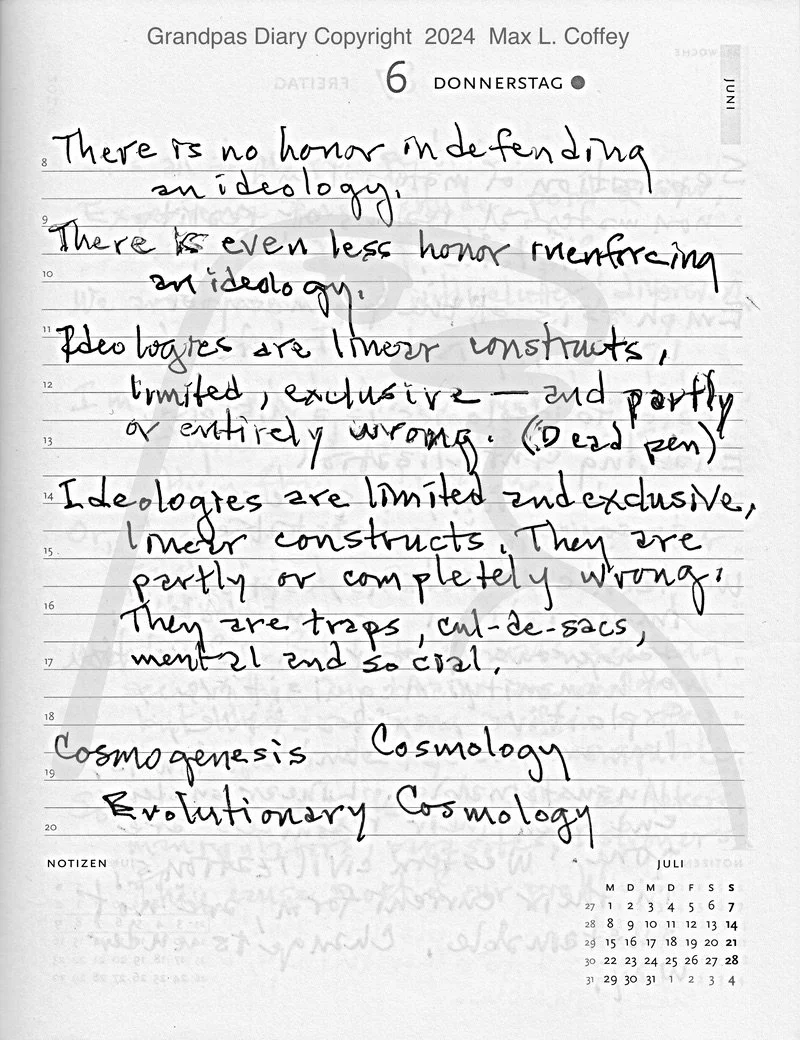 Grandpas Diary Copyright 2024 Max L. Coffey
6 DONNERSTAG
JUNI
8 There is no honor in defending
an ideology.
9 There is even less honor in enforcing
10 an ideology.
11 Ideologies are linear constructs,
12 limited, exclusive — and partly
13 or entirely wrong. (Dead pen)
14 Ideologies are limited and exclusive,
linear constructs. They are
15 partly or completely wrong.
16 They are traps, cul-de-sacs,
17 mental and social.
18
Cosmogenesis Cosmology
19
Evolutionary Cosmology
20
NOTIZEN
JULI
M D M D F S S
27 1 2 3 4 5 6 7
28 8 9 10 11 12 13 14
29 15 16 17 18 19 20 21
30 22 23 24 25 26 27 28
31 29 30 31 1 2 3 4